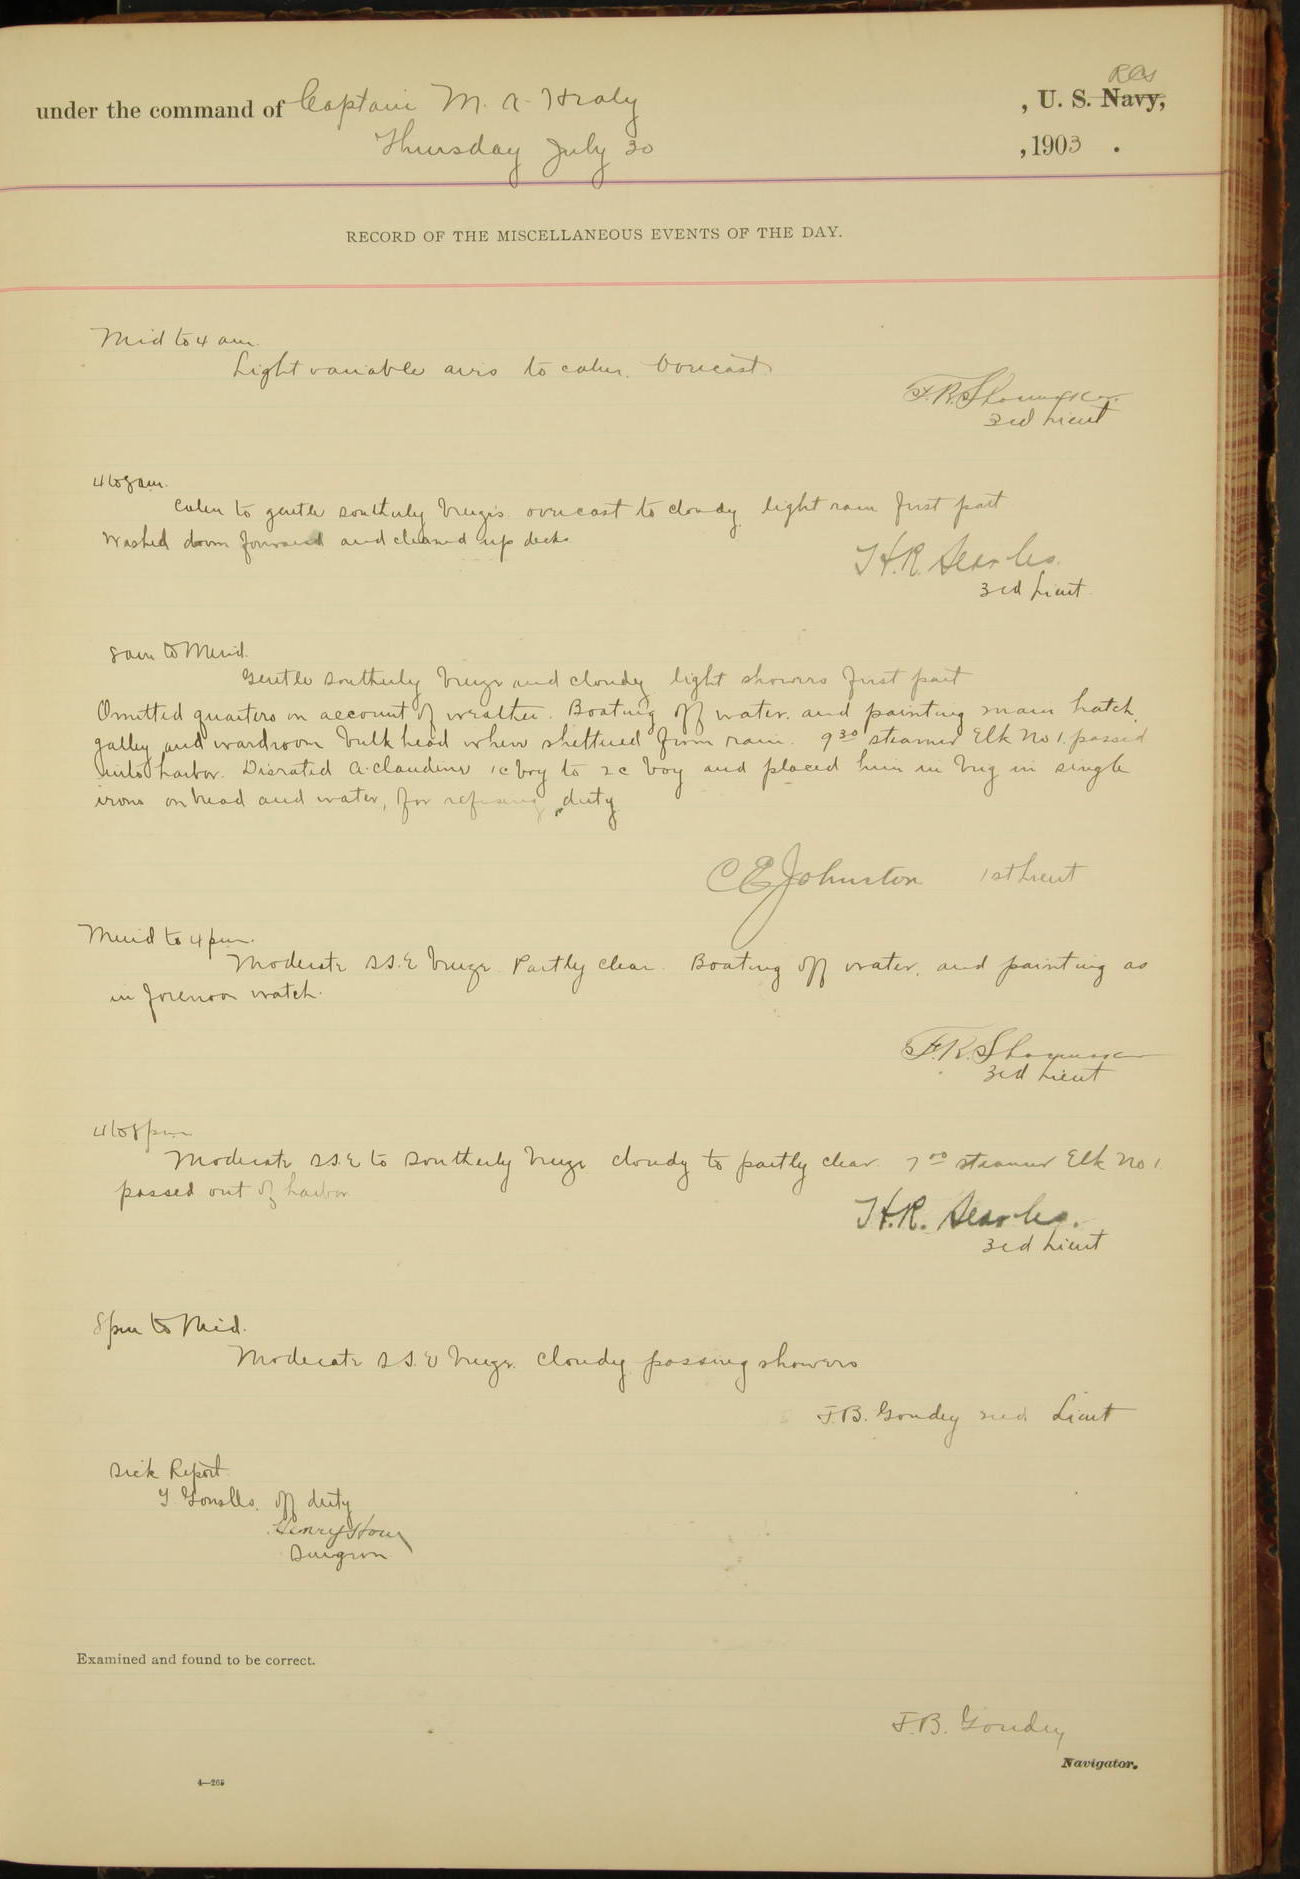 RCS
under the command of Captain M. A. Healy, U. S. Navy,
Thursday July 30, 1903.
RECORD OF THE MISCELLANEOUS EVENTS OF THE DAY.
Mid to 4 am.
Light variable airs to calm. Overcast.
F. R. Shoemaker.
3rd Lieut
4 to 8 am.
Calm to gentle southerly breezes. overcast to cloudy. light rain first part
Washed down forward and cleaned up decks
H. R. Searles.
3rd Lieut.
8 am to Merid.
Gentle southerly breeze and cloudy light showers first part
Omitted quarters on account of weather. Boating off water. and painting main hatch,
galley and wardroom bulkhead where sheltered from rain. 9 30 steamer Elk No 1. passed
into harbor. Disrated A. Claudino 1c boy to 2c boy and placed him in brig in single
irons on bread and water, for refusing duty
C E Johnston 1st Lieut
Merid to 4 pm.
Moderate S.S.E breeze. Partly clear. Boating off water, and painting as
in forenoon watch.
F. R. Shoemaker
3rd Lieut
4 to 8 pm
Moderate S.S.E to southerly breeze cloudy to partly clear. 7 00 steamer Elk No 1.
passed out of harbor
H. R. Searles.
3rd Lieut
8 pm to Mid.
Moderate S S. E breeze. Cloudy passing showers
J. B. Goudey 2nd Lieut
Sick Report.
off duty
Henry Horn
Surgeon
Examined and found to be correct.
J. B. Goudey
Navigator.
4—265